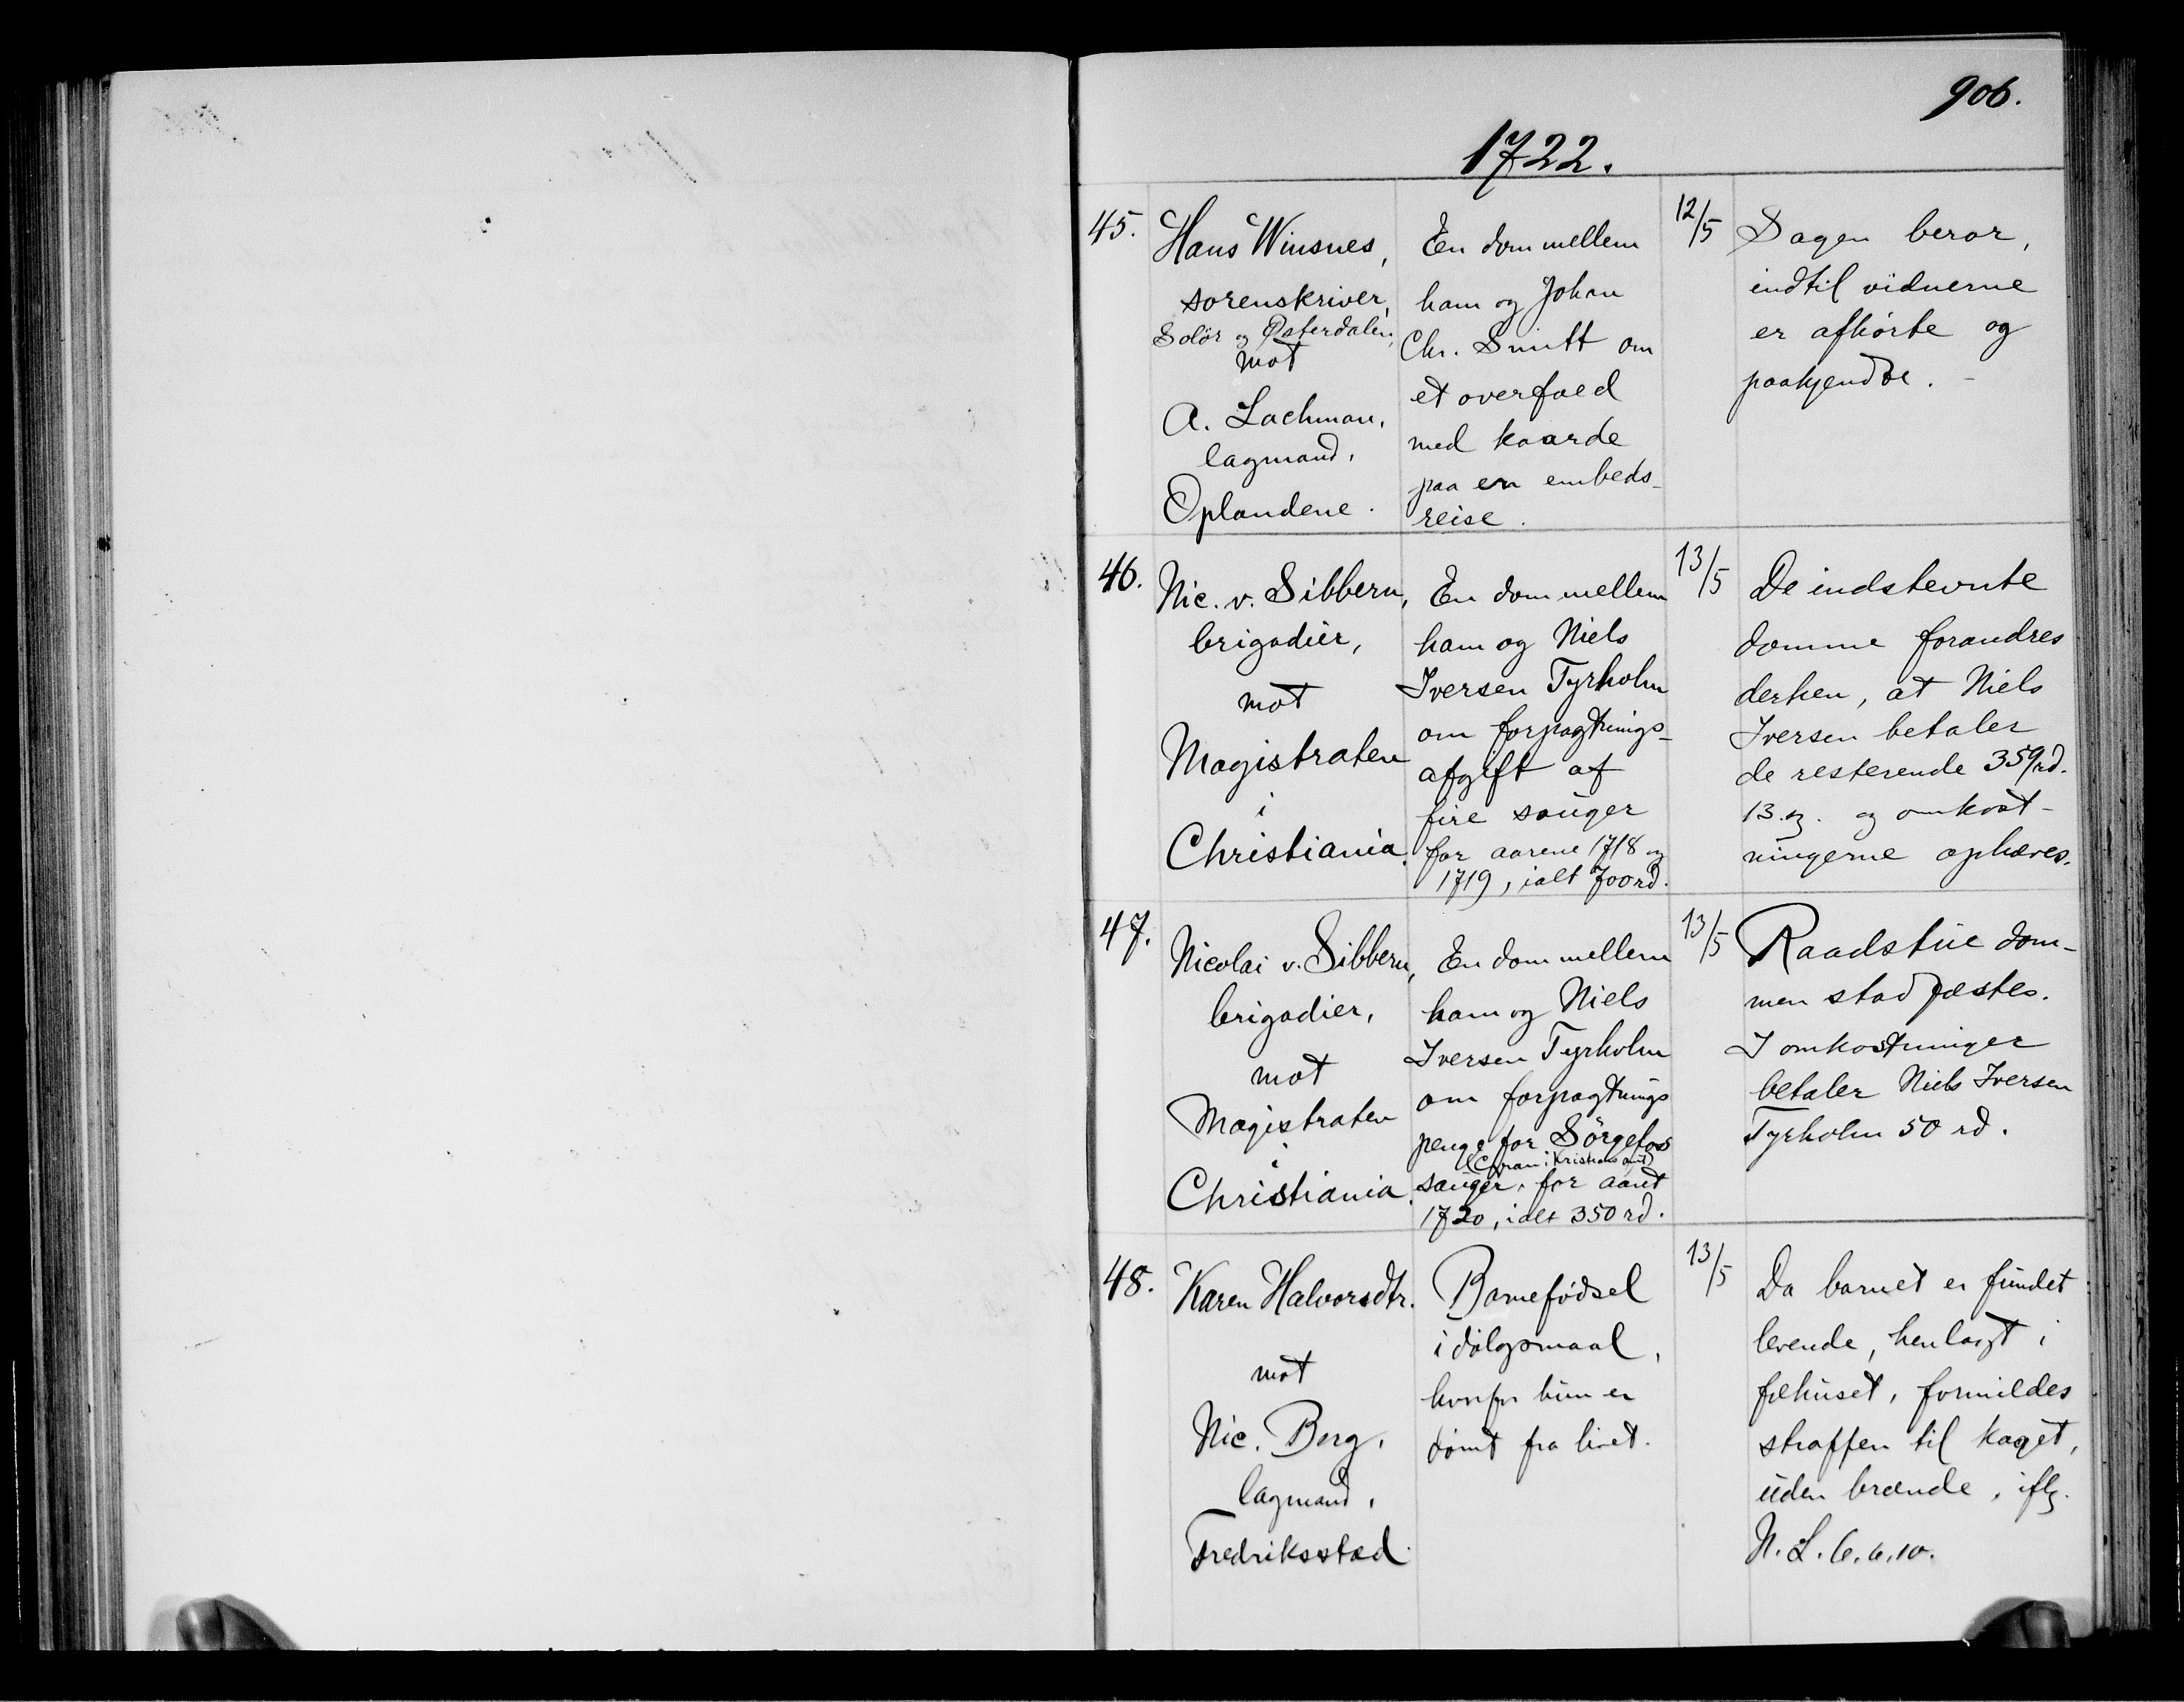 906.
1722.
45.
Hans Winsnes,
sorenskriver,
Solør og Østerdalen,
mot
A. Lachman,
lagmand,
Oplandene.
En dom mellem
ham og Johan
Chr. Smitt om
et overfald
med kaarde
paa en embeds-
reise.
12/5
Sagen beror,
indtil vidnerne
er afhørte og
paakjendte. -
46.
Nic. v. Sibbern,
brigadier,
mot
Magistraten
i
Christiania.
En dom mellem
ham og Niels
Iversen Tyrholm
om forpagtnings-
afgift af
fire sauger
for aarene 1718 og
1719, ialt 700 rd.
13/5
De indstevnte
domme forandres
derhen, at Niels
Iversen betaler
de resterende 359 rd.
13. og omkost-
ningerne ophæves.
47.
Nicolai v. Sibbern,
brigadier,
mot
Magistraten
i
Christiania.
En dom mellem
ham og Niels
Iversen Tyrholm
om forpagtnings
penge for Sørgefos
Kristians amt)
sauger, for aaret
1720, ialt 350 rd.
13/5
Raadstue dom-
men stadfæstes.
I omkostninger
betaler Niels Iversen
Tyrholm 50 rd.
48.
Karen Halvorsdtr.
mot
Nic. Borg,
lagmand,
Fredriksstad.
Barnefødsel
i dølgsmaal,
hvorfor hun er
dømt fra livet.
13/5
Da barnet er fundet
levende, henlagt i
fæhuset, formildes
straffen til kaget,
uden brænde, iflg.
N. L. 6.6.10.